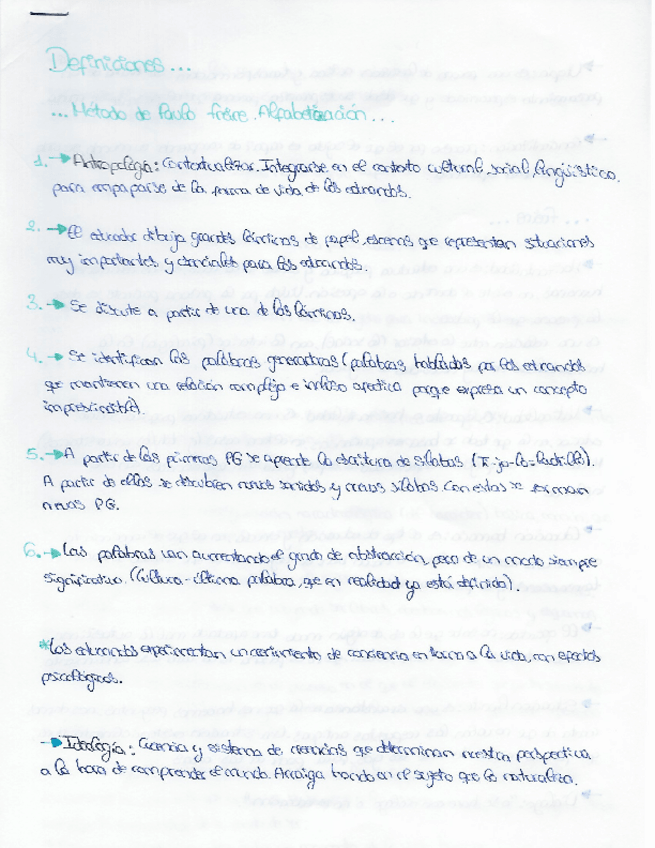 Definiciones...
... Método de Paulo Freire. Alfabetización...
1. → Antropología: Contextualizar. Integrarse en el contexto cultural, social, lingüístico.
para empaparse de la forma de vida de los educandos.
2. → El educador dibuja grandes láminas de papel, escenas que representan situaciones
muy importantes y cruciales para los educandos.
3. → Se discute a partir de una de las láminas.
4. → Se identifican las palabras generadoras (palabras habladas por los educandos
que mantienen una relación compleja e incluso afectiva porque expresa un concepto
imprescindible).
5. → A partir de las primeras PG se aprende la escritura de sílabas (Ti-jo-lo = ladrillo).
A partir de ellas se descubren nuevos sonidos y nuevas sílabas. Con estas se forman
nuevas PG.
6. → Las palabras van aumentando el grado de abstracción, pero de un modo siempre
significativo. (Cultura - última palabra, que en realidad ya está definida).
*Los educandos experimentan un crecimiento de conciencia en torno a la vida, con efectos
psicológicos.
→ Ideología: Creencia y sistema de creencias que determinan nuestra perspectiva
a la hora de comprender el mundo. Arraiga hondo en el sujeto que la naturaliza.